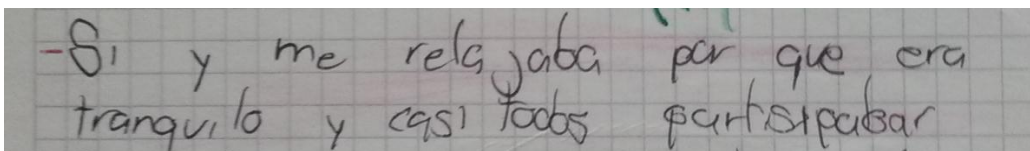 -Si y me relajaba por que era
tranquilo y casi todos partisipaban